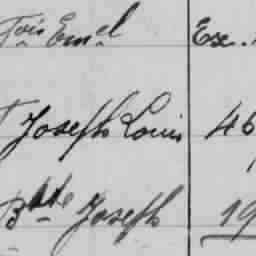 Fois Emel Exe.
Joseph Louis 46
Bte Joseph 19